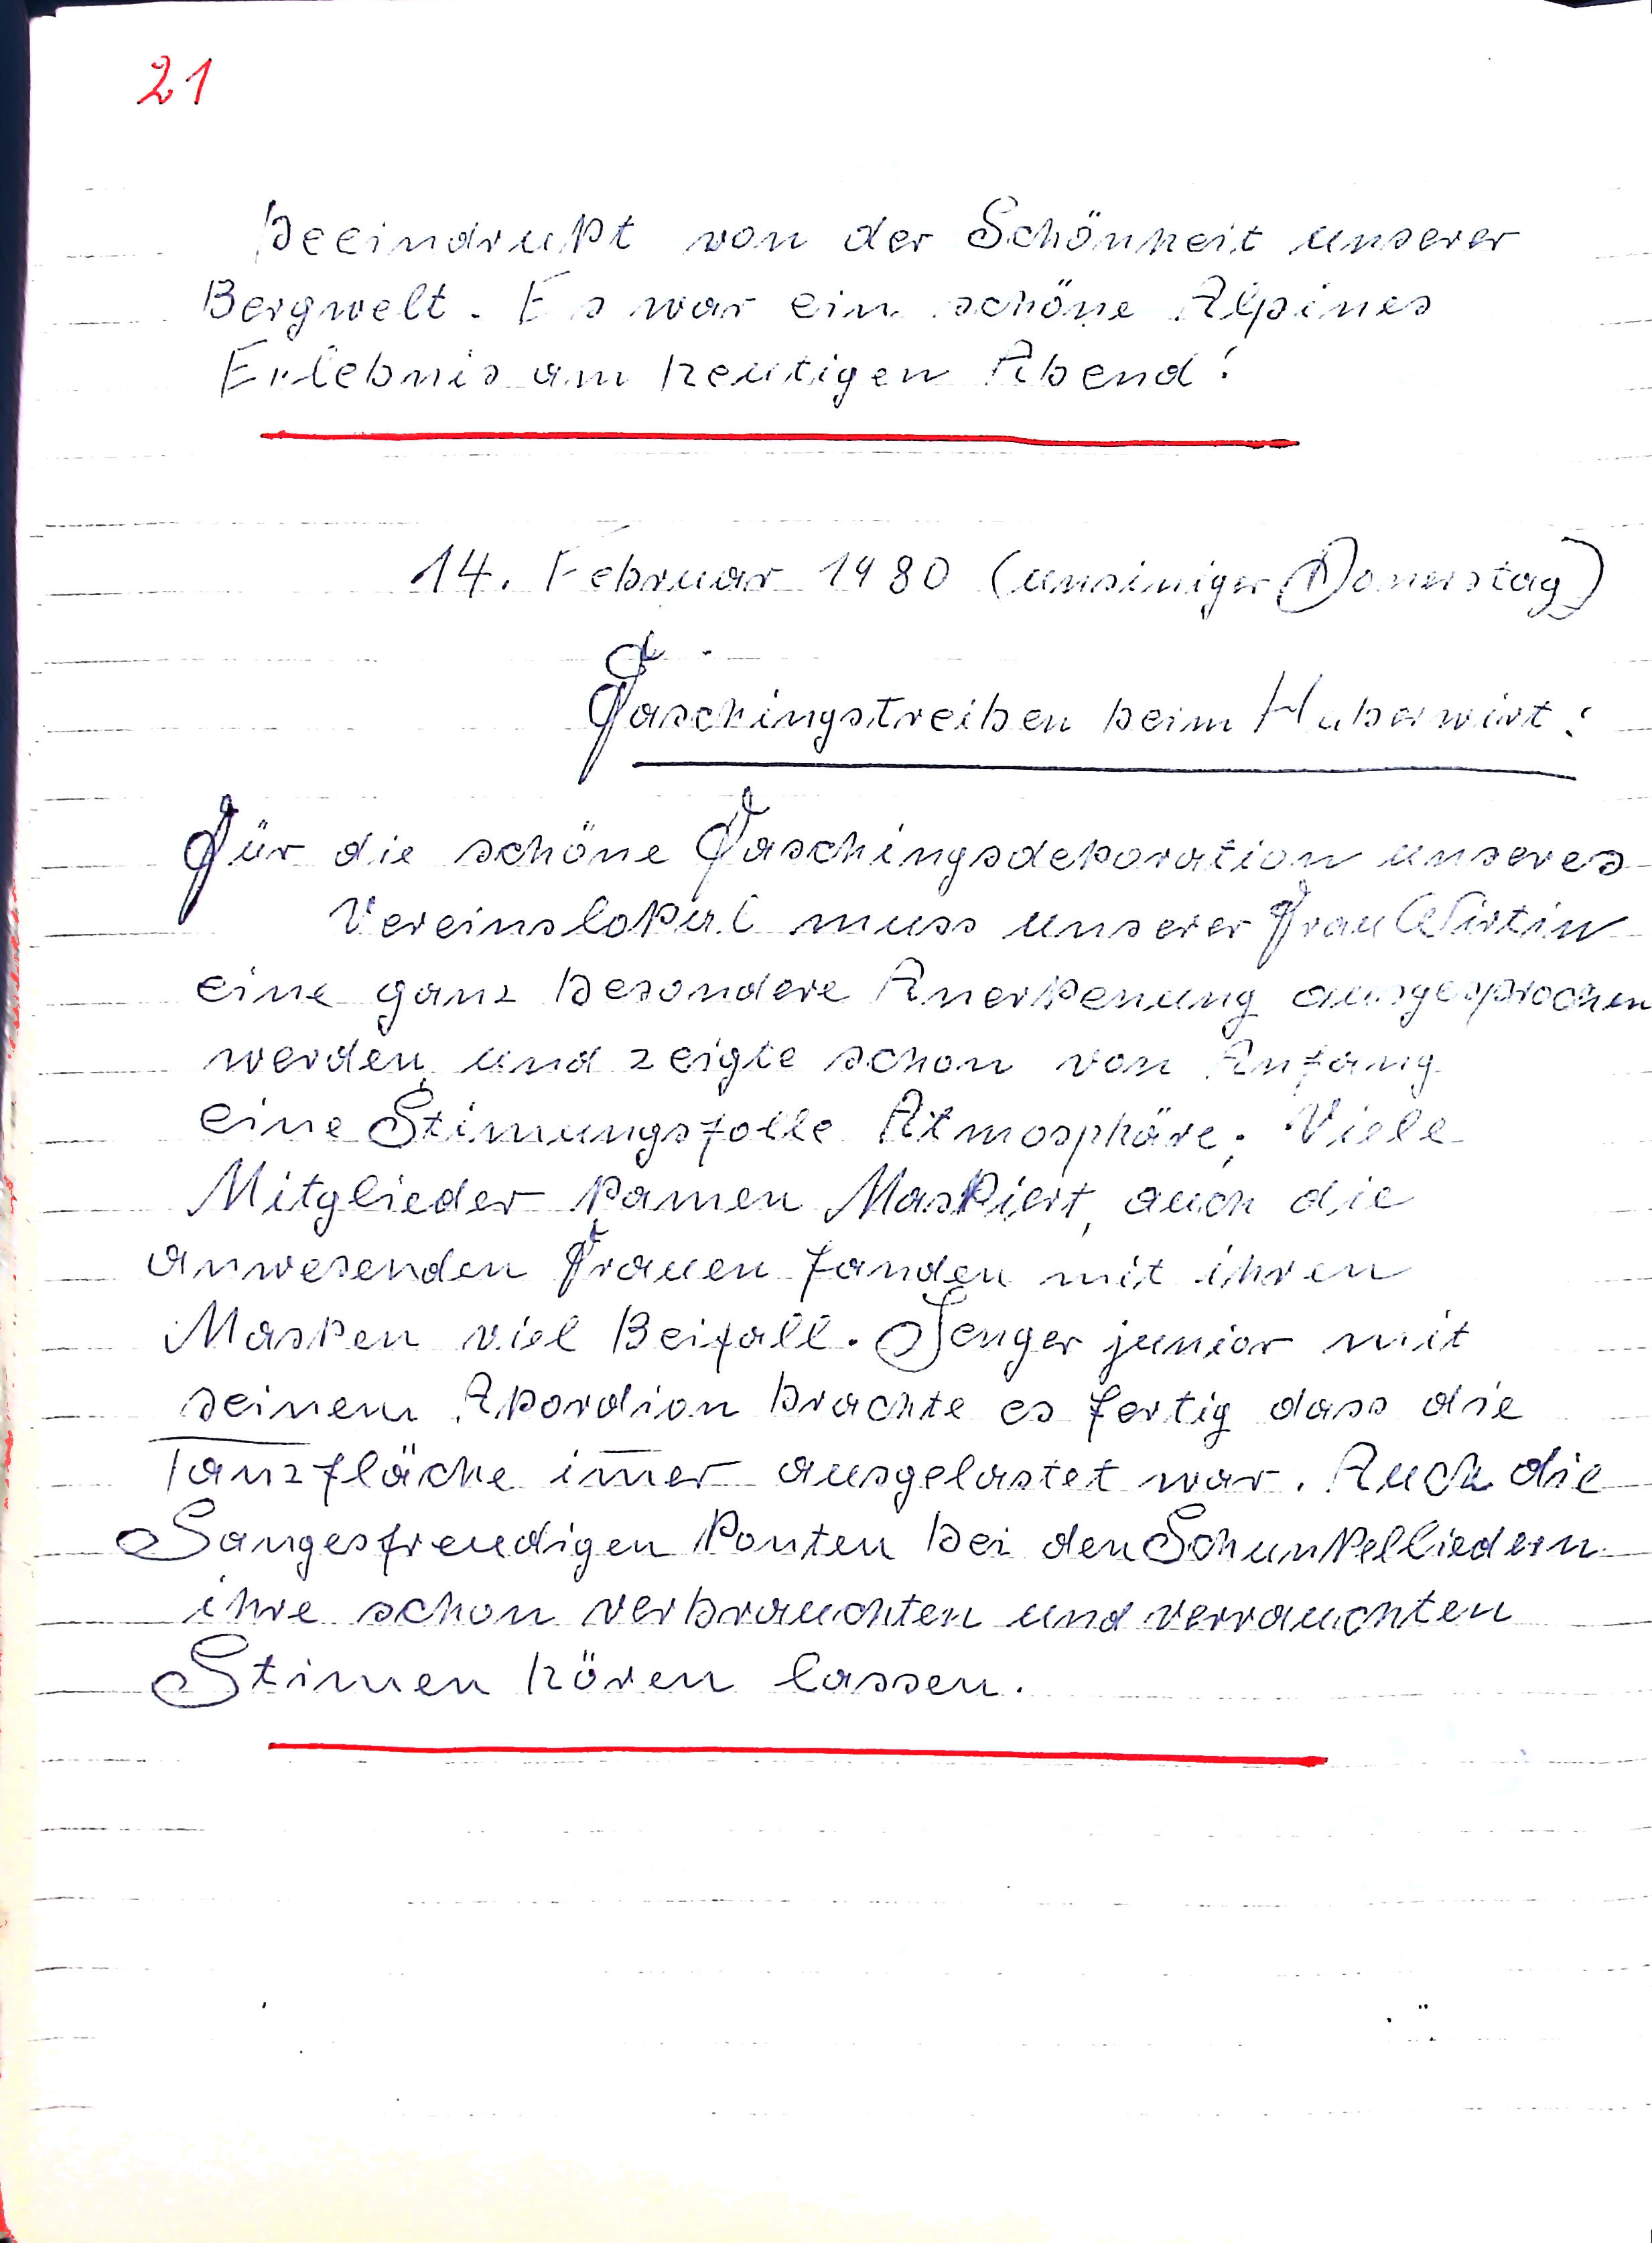 21
beeindrukt von der Schönheit unserer
Bergwelt. Es war ein schöne Alpines
Erlebnis am heutigen Abend!
14. Februar 1980 (unsiniger Donerstag)
Faschingstreiben beim Huberwirt:
Für die schöne Faschingsdekoration unseres
Vereinslokal muss unserer Frau Wirtin
eine ganz besondere Anerkenung ausgesprochen
werden, und zeigte schon von Anfang
eine Stimungsfolle Atmosphäre; Viele
Mitglieder kamen Maskiert, auch die
anwesenden Frauen fanden mit ihren
Masken viel Beifall. Senger junior mit
seinem Akordion brachte es fertig dass die
Tanzfläche im̅er ausgelastet war. Auch die
Sangesfreudigen konten bei den Schunkelliedern
ihre schon verbrauchten und verrauchten
Stimen hören lassen.